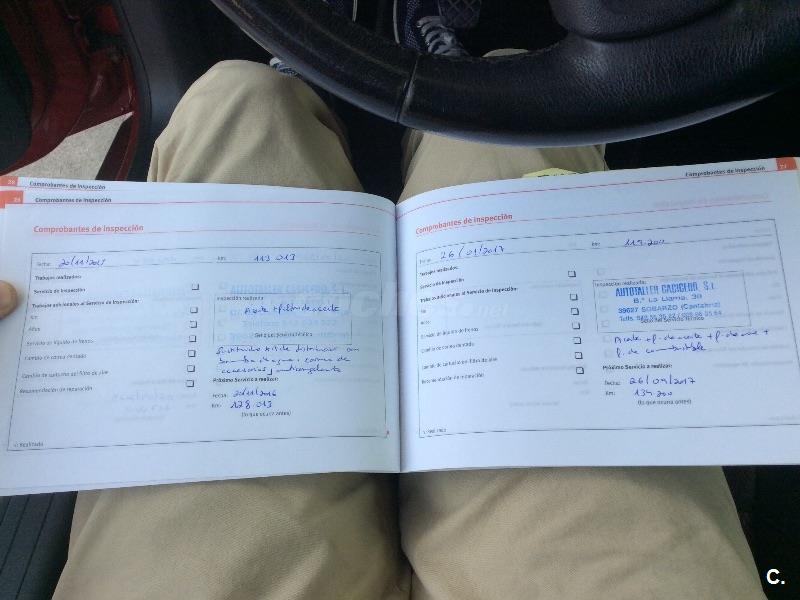 28 Comprobantes de Inspección
26 Comprobantes de Inspección
Comprobantes de Inspección
Fecha: 20/11/2015
Km: 113 013
Trabajos realizados:
Servicio de Inspección
Trabajos adicionales al Servicio de Inspección:
Km
Años
Servicio de líquido de frenos
Cambio de correa dentada
Cambio de cartucho del filtro de aire
Recomendación de reparación
Inspección realizada:
Aceite + filtro de aceite
Sello del Servicio Técnico
Sustituido kit de distribución con
bomba de agua, correa de
accesorios y anticongelante
Próximo Servicio a realizar:
Fecha: 20/11/2016
Km: 128.013
(lo que ocurra antes)
Realizado
Comprobantes de Inspección 27
Comprobantes de Inspección
Fecha: 26/01/2017
Km: 119.200
Trabajos realizados:
Servicio de Inspección
Trabajos adicionales al Servicio de Inspección:
Km
Años
Servicio de líquido de frenos
Cambio de correa dentada
Cambio de cartucho del filtro de aire
Recomendación de reparación
Inspección realizada:
AUTOTALLER CAGIGERO, S.L.
B.º La Llama, 39
39627 SOBARZO (Cantabria)
Sello del Servicio Técnico
Aceite + f. de aceite + f. de aire +
f. de combustible
Próximo Servicio a realizar:
Fecha: 26/09/2017
Km: 134.200
(lo que ocurra antes)
Realizado
C.